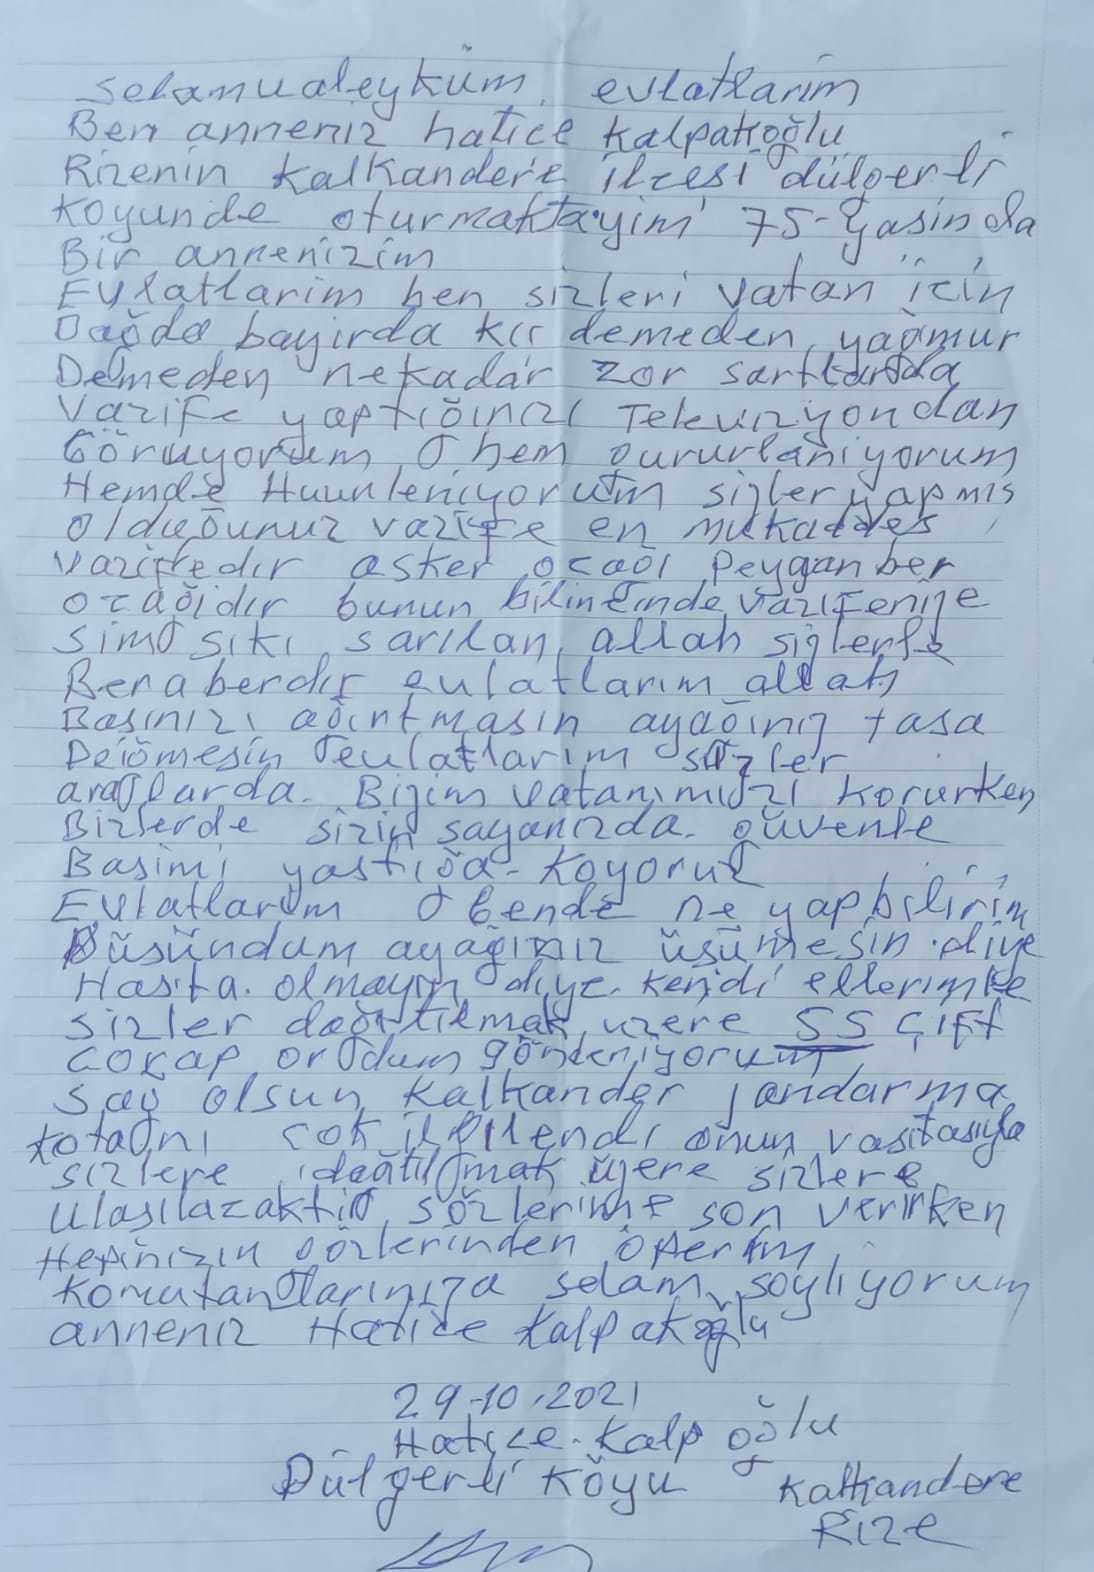 Selamualeyküm, evlatlarim
Ben anneniz hatice Kalpakoğlu
Rizenin Kalkandere ilcesi dülgerli
Koyunde oturmaktayim 75-Yasinda
Bir annenizim
Evlatlarim ben sizleri vatan icin
Dağda bayirda kıs demeden, yağmur
Demeden nekadar zor sartlarda
Vazife yaptığınızı Televizyondan
Göruyorum, hem gururlaniyorum
Hemde Huunleniyorum sizler yapmıs
olduğunuz vazife en mukaddes
vazifedir asker ocağı Peyganber
ocağidır bunun bilincinde, vazifenize
simsıkı sarılan, allah sizlerle
Beraberdır evlatlarım allah
Basınızı ağırıtmasin ayağınız tasa
Değmesin evlatlarım sizler
oralarda. Bizim vatanımızı korurken
Bizlerde sizin sayanızda. güvenle
Basimi yastığa-koyoruz
Evlatlarım bende ne yapbilirim
Düsündum ayağınız üsümesin.diye
Hasta. olmayın diye. kendi ellerimle
sizler dağıtılmak, uzere 55 çift
çorap ordum gönderiyorum
sağ olsun, Kalkander jandarma
cok ilgilendi onun vasıtasıyla
sizlere dağıtılmak üzere sizlere
ulasılacaktır, sözlerime son verirken
Hepinizin gözlerinden öperim,
Komutanlarınıza selam, soylıyorum
anneniz Hatice Kalpakoğlu
29-10.2021
Hatice. Kalp oğlu
Dülgerli Köyu Kalkandere
Rize